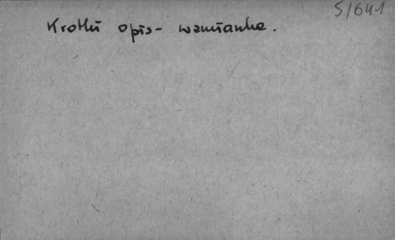 5/641
Krótki opis - wzmianka.